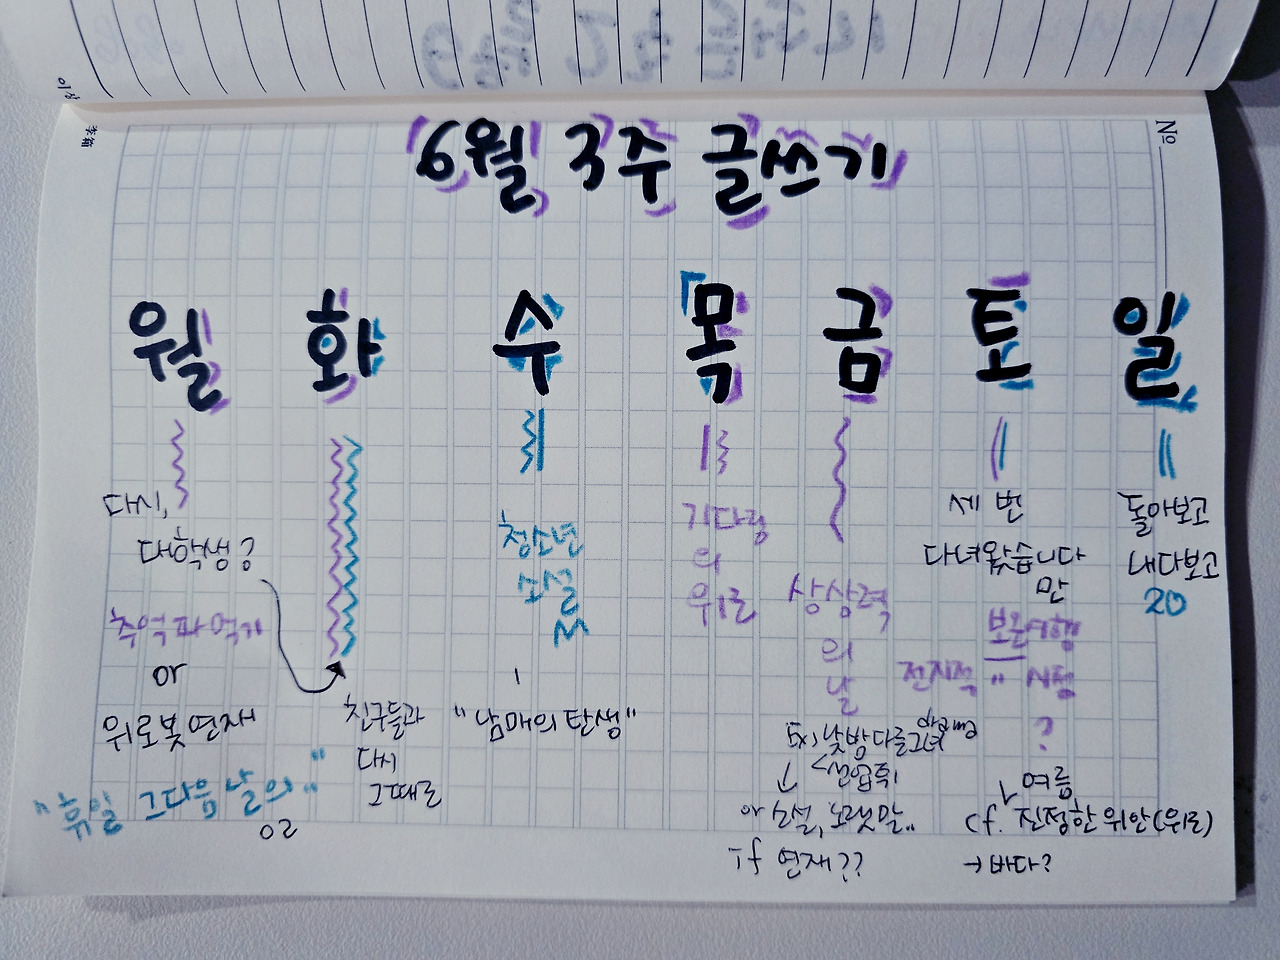 No
6월 3주 글쓰기
월 화 수 목 금 토 일
다시,
대학생?
추억 파먹기
or
위로봇 연재
"휴일 그다음 날의"
02
친구들과
다시
그때로
청소년
소설
M
"남매의 탄생"
기다림
의
위로
상상력
의
날
Ex) 낮밤 다를 그녀
or 소설, 노랫말..
if 연재??
세 번
다녀왔습니다
만
보은여행
전지적 " 시점
?
여름
cf. 진정한 위안(위로)
→ 바다?
돌아보고
내다보고
20